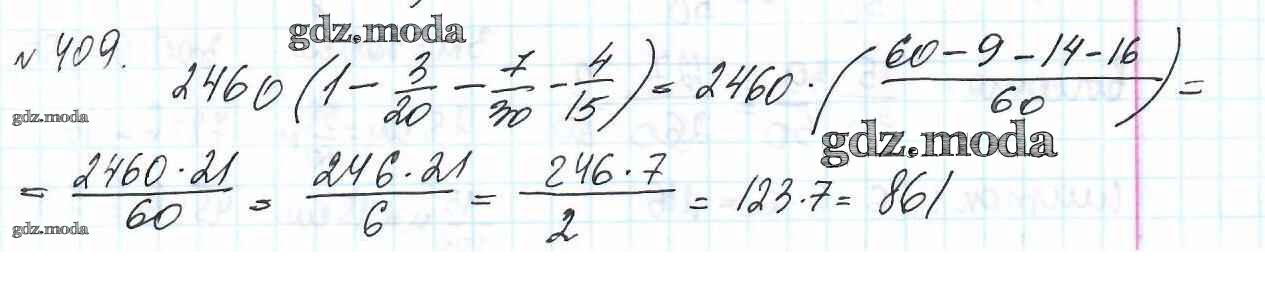 gdz.moda
№ 409.
2460 (1 - 3/20 - 7/30 - 4/15) = 2460 · ((60 - 9 - 14 - 16)/60) =
gdz.moda
gdz.moda
= (2460 · 21)/60 = (246 · 21)/6 = (246 · 7)/2 = 123 · 7 = 861
gdz.moda